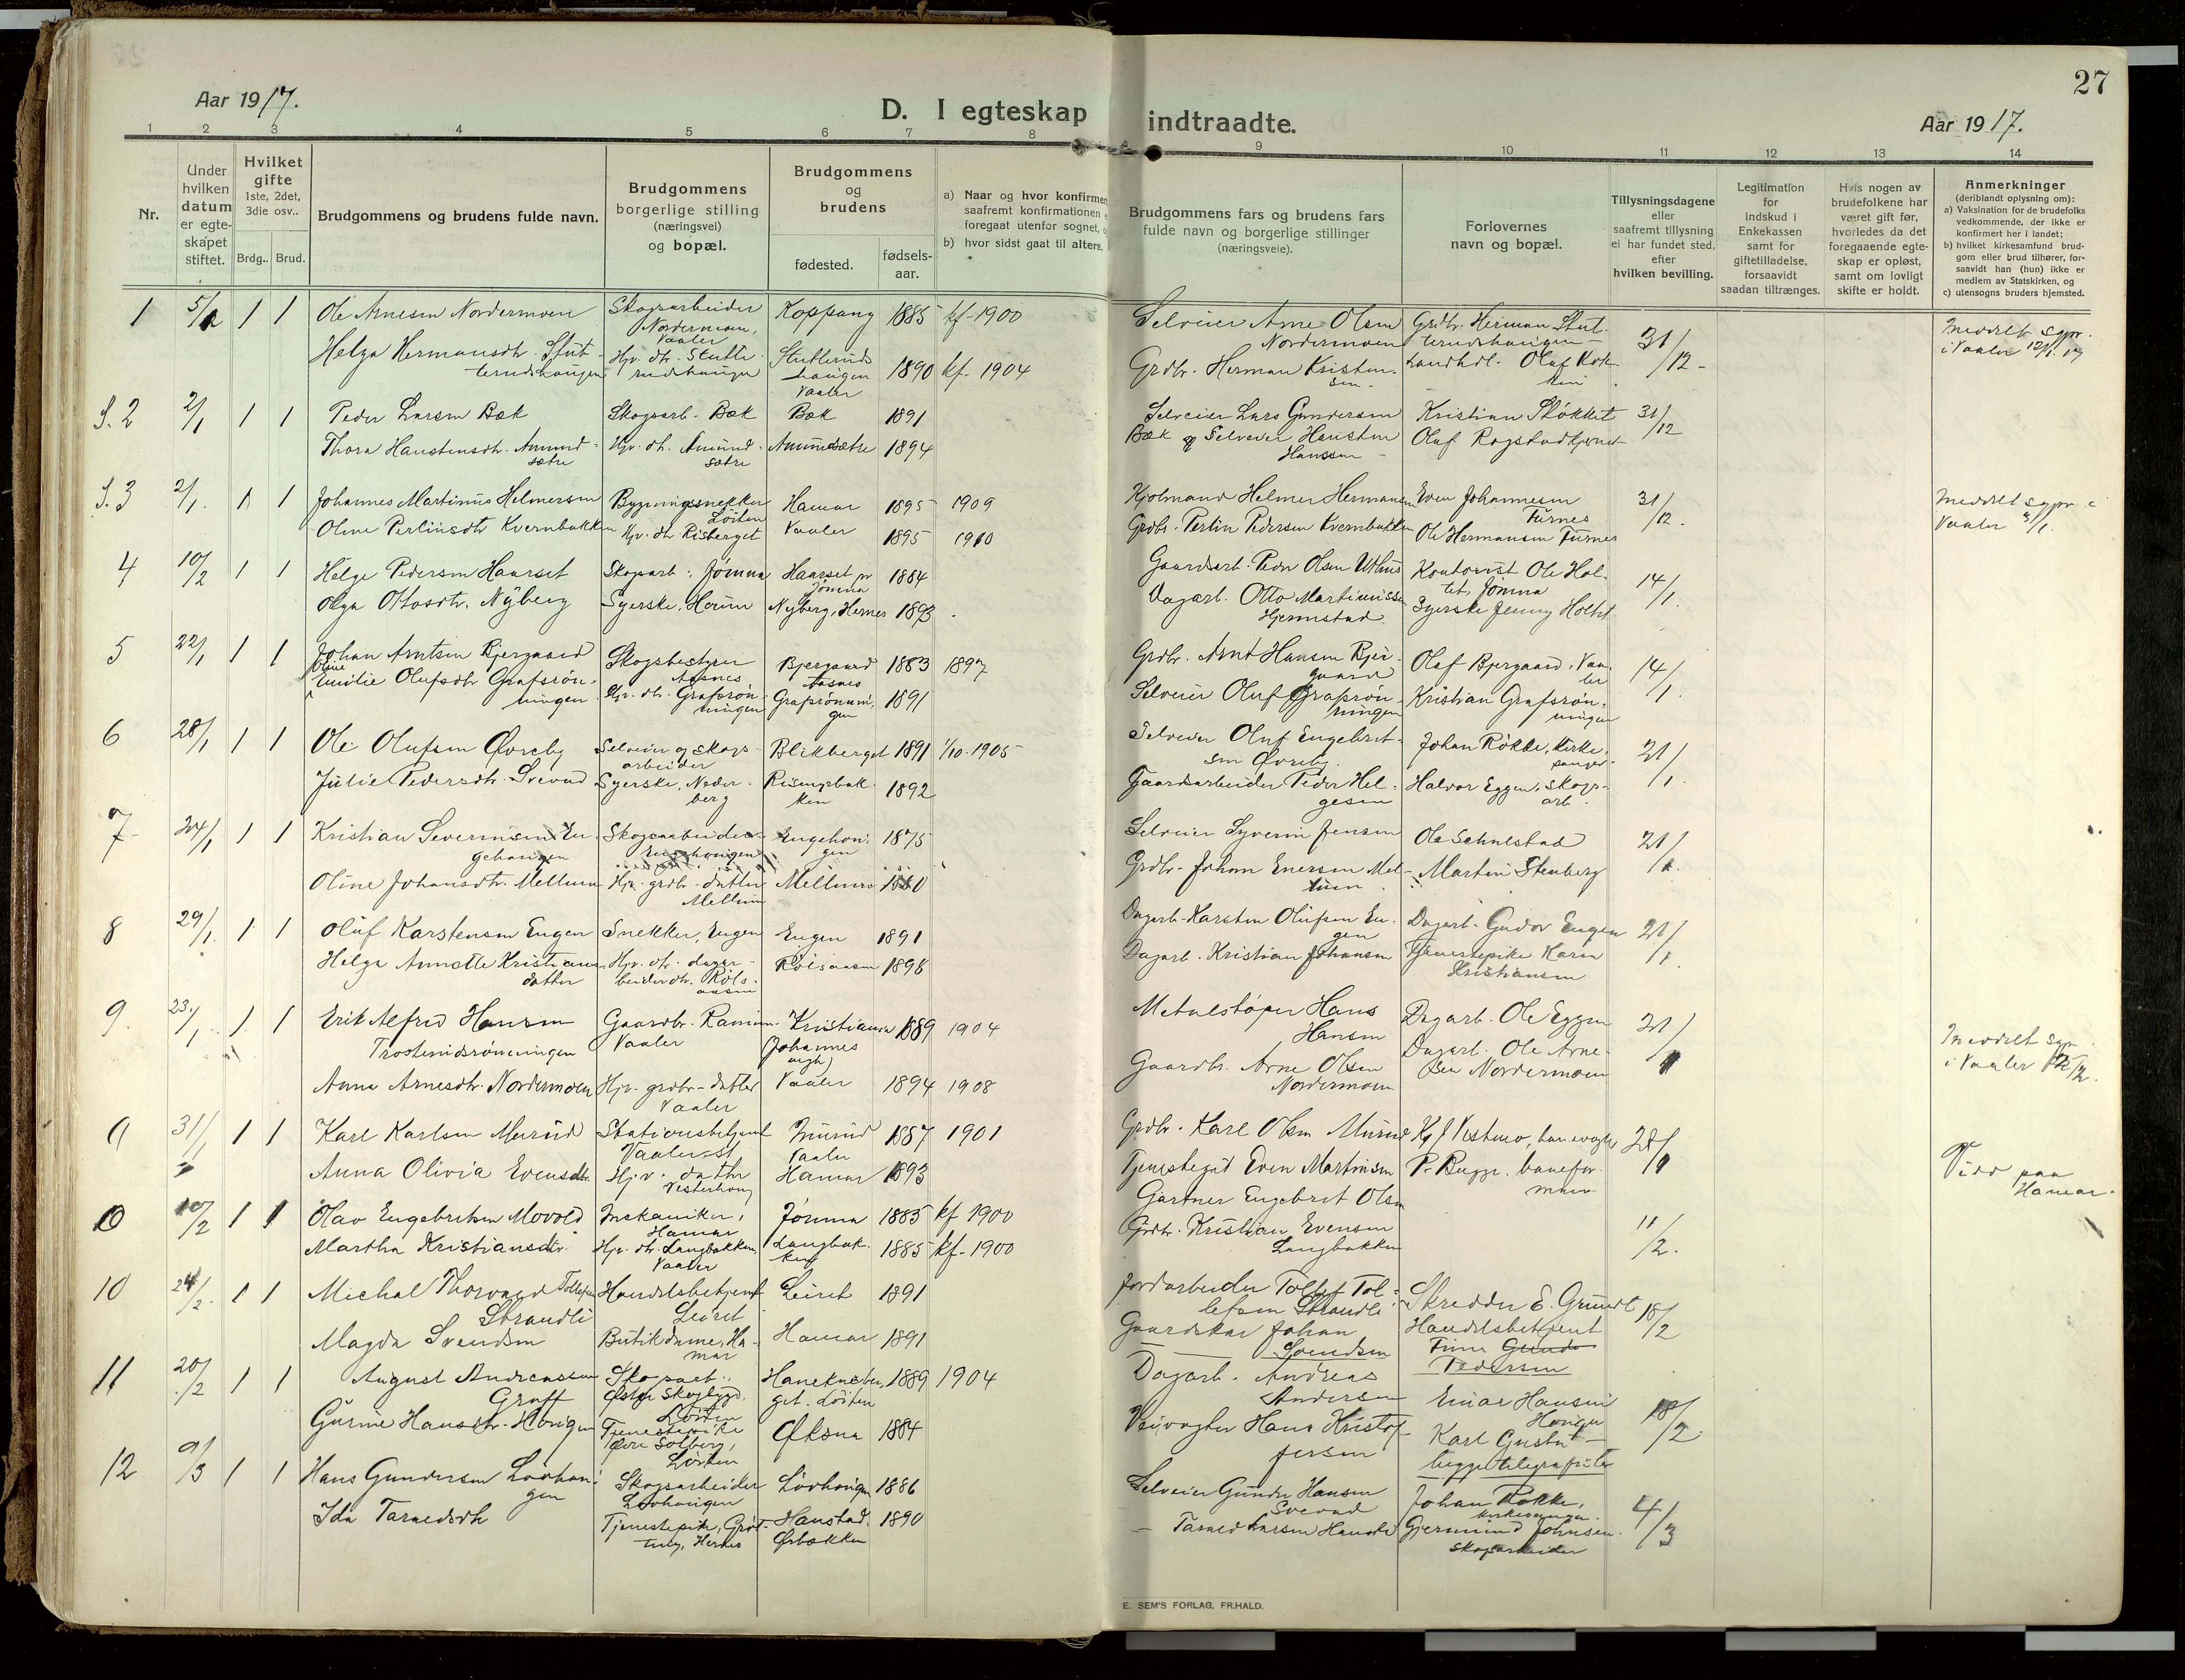 27
Aar 1917.
D. I egteskap indtraadte.
Aar 1917.
1 2 3 4 5 6 7 8 9 10 11 12 13 14
Nr.
Under hvilken datum er egteskapet stiftet.
Hvilket gifte
1ste, 2det, 3die osv..
Brdg.. Brud.
Brudgommens og brudens fulde navn.
Brudgommens borgerlige stilling (næringsvei) og bopæl.
Brudgommens og brudens
fødested.
fødselsaar.
a) Naar og hvor konfirmert
saafremt konfirmationen
foregaat utenfor sognet,
b) hvor sidst gaat til alters.
Brudgommens fars og brudens fars
fulde navn og borgerlige stillinger
(næringsveie).
Forlovernes
navn og bopæl.
Tillysningsdagene
eller
saafremt tillysning
ei har fundet sted,
efter
hvilken bevilling.
Legitimation
for
indskud i
Enkekassen
samt for
giftetilladelse,
forsaavidt
saadan tiltrænges.
Hvis nogen av
brudefolkene har
været gift før,
hvorledes da det
foregaaende egte-
skap er opløst,
samt om lovligt
skifte er holdt.
Anmerkninger
(deriblandt oplysning om):
a) Vaksination for de brudefolks
vedkommende, der ikke er
konfirmert her i landet;
b) hvilket kirkesamfund brud-
gom eller brud tilhører, for-
saavidt han (hun) ikke er
medlem av Statskirken, og
c) utensogns bruders hjemsted.
1 1 1 Ole Arnesen Nordermoen Skogsarbeider Nordermoen, Vaaler Koppang 1885 kf-1900 Selveier Arne Olsen Nordermoen Grdbr. Herman Stutterudshaugen 31/12 Meddelt sgpr. i Vaaler
Helga Hermansdtr. Stutterudshaugen Hjv. dtr. Stutterudshaugen Stutterudshaugen Vaaler 1890 kf-1904 Grdbr. Herman Kristensen Landhdl. Olaf
S. 2 2/1 1 1 Peder Larsen Bæk Skogsarb. Bæk Bæk 1891 Selveier Lars Gundersen Bæk og Selveier Hausten Hanssen Kristian Støkket 31/12
Thora Haustensdtr. Amundsætre Hjv. dtr. Amundsætre Amundsætre 1894 Olaf Rogstadkjernet
S. 3 2/1 1 1 Johannes Martinius Helmersen Bygningssnekker Løiten Hamar 1895 1909 Helmer Hermansen Even Johannesen Furnes 31/12 Meddelt sgpr. i Vaaler
Oline Perlinsdtr Kvernbakken Hjv. dtr Risberget Vaaler 1895 1910 Grdbr. Perlin Pedersen Kvernbakken Ole Hermansen Furnes
4 10/2 1 1 Helge Pedersen Haarset Skogsarb. Jømna Haarset pr Jømna 1884 Gaardsarb. Peder Olsen Uthus Kontorist Ole Holtet, Jømna 14/1
Olga Ottosdtr. Nyberg Syerske, Nyberg, Hernes 1893 Dagarb. Otto Martinissen Hjernstad Syerske Jenny Holtet
5 22/1 1 1 Johan Arntsen Bjergaard Skogbestyrer Aasnes Bjergaard Aasnes 1883 1897 Grdbr. Arnt Hansen Bjergaard Olaf Bjergaard, Vaaler 14/1
Oline Emilie Olufsdtr Grafsrønningen Hjv. dtr. Grafsrønningen Grafsrønningen 1891 Selveier Oluf Grafsrønningen Kristian Grafsrønningen
6 28/1 1 1 Ole Olufsen Øvreby Selveier og skogsarbeider Blikberget 1891 1/10-1905 Selveier Oluf Engebretsen Øvreby Johan Røkke, kirkesanger 21/1
Julie Pedersdtr. Sveen Syerske, Nederberg Risengsbakken 1892 Gaardsarbeider Peder Helgesen Halvor Eggen, skogsarb.
7 24/1 1 1 Kristian Severinsen Engehaugen Skogsarbeider Engehaugen 1875 Selveier Syverin Jensen Ole Schulstad 21/1
Oline Johansdtr. Mellum Hjv. grdbr-datter Mellum Mellum Grdbr. Johan Enersen Mellum Martin Stenberg
8 29/1 1 1 Oluf Karstensen Engen Snekker, Engen Engen 1891 Dagarb. Karsten Olufsen Engen Dagarb. Gudor Engen 21/1
Helga Annette Kristiansdatter Hjv. dtr. dagarbeiderdtr. Rølsaasen Rølsaasen 1896 Dagarb. Kristian Johansen Tjenestepike Karen Kristiansen
9. 23/1 1 1 Erik Alfred Hansen Gaardbr. Vaaler Kristiania (Johannes mgh) 1889 1904 Metalstøper Hans Hansen Dagarb. Ole Eggen 21/1 Meddelt sgpr. i Vaaler
Anna Arnesdtr. Nordermoen Hjv. grdbr-datter Vaaler Vaaler 1894 1908 Gaardbr. Arne Olsen Nordermoen Dagarb. Ole Arnesen Nordermoen
9 31/1 1 1 Karl Karlsen Murud Stationsbetjent Vaaler st Murud Vaaler 1887 1901 Grdbr. Karl Olsen Murud Vestmo, banevogter 28/1 Viet paa Hamar.
Anna Olivia Evensdtr. Hjv. datter Vesterhaug Hamar 1893 Tjenestegut Even Martinsen P. Bugge, baneformand
10 10/2 1 1 Olav Engebretsen Movold Mekaniker, Hamar Jømna 1885 kf 1900 Gartner Engebret Olsen 11/2.
Martha Kristiansdtr. Hjv. dtr. Langbakken, Vaaler Langbakken 1885 kf-1900 Grdbr. Kristian Evensen Langbakken
10 24/2 1 1 Michal Thorvald Tollefsen Strandli Handelsbetjent Leiret Leiret 1891 Jordarbeider Tollef Tollefsen Strandli Skredder E. Grundt 18/2
Magda Svendsen Butikdame, Hamar Hamar 1891 Gaardskar Johan Svendsen Handelsbetjent Finn Pedersen
11 20/2 1 1 August Andreassen Graff Skogsarb. Østre Skogbygd. Løiten Løiten 1889 1904 Dagarb. Andreas Andersen Einar Hansen Haugen 18/2
Gurine Hansdtr. Haugen Tjenestepike Øvre Solberg, Løiten Øksna 1884 Veivogter Hans Kristoffersen Karl begge telegrafister
12 9/3 1 1 Hans Gundersen Lövhaugen Skogsarbeider Løvhaugen Lövhaugen 1886 Selveier Gunder Hansen Sveen Johan Røkke, kirkesanger 4/3
Ida Taraldsdtr Tjenestepike, Hernes Haustad Ørbækken 1890 Larsen Gjermund Johnsen. skogsarbeider
E. SEM'S FORLAG, FR.HALD.